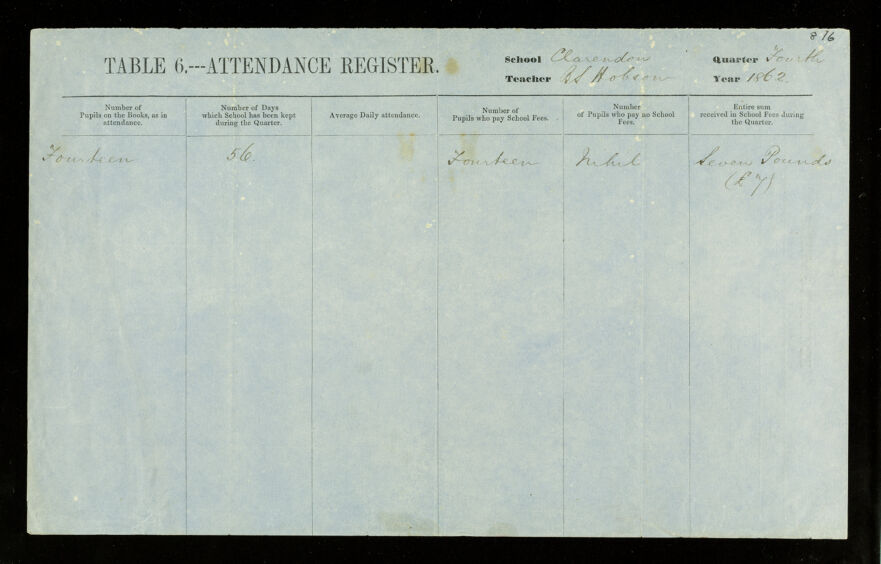 876
TABLE 6.---ATTENDANCE REGISTER.
School Clarendon
Quarter Fourth
Teacher Hobson
Year 1862
Number of
Pupils on the Books, as in
attendance.
Number of Days
which School has been kept
during the Quarter.
Average Daily attendance.
Number of
Pupils who pay School Fees.
Number
of Pupils who pay no School
Fees.
Entire sum
received in School Fees during
the Quarter.
Fourteen
56.
Fourteen
Nihil
Seven Pounds
(£7)